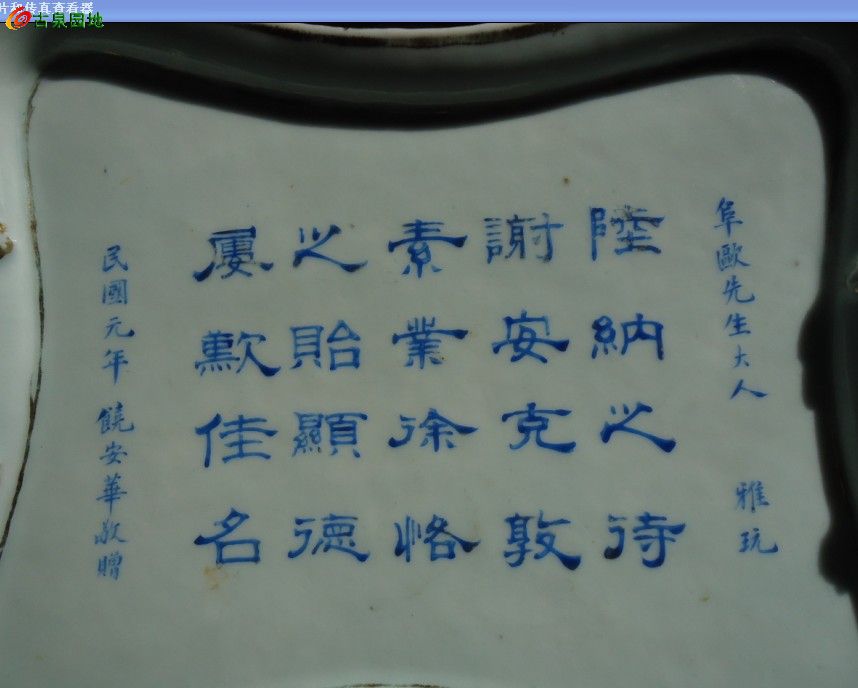 片和传真查看器
古泉园地
阜歐先生大人 雅玩
陸納之待
謝安克敦
素業徐恪
之貽顯德
屢歎佳名
民國元年 饒安華敬贈